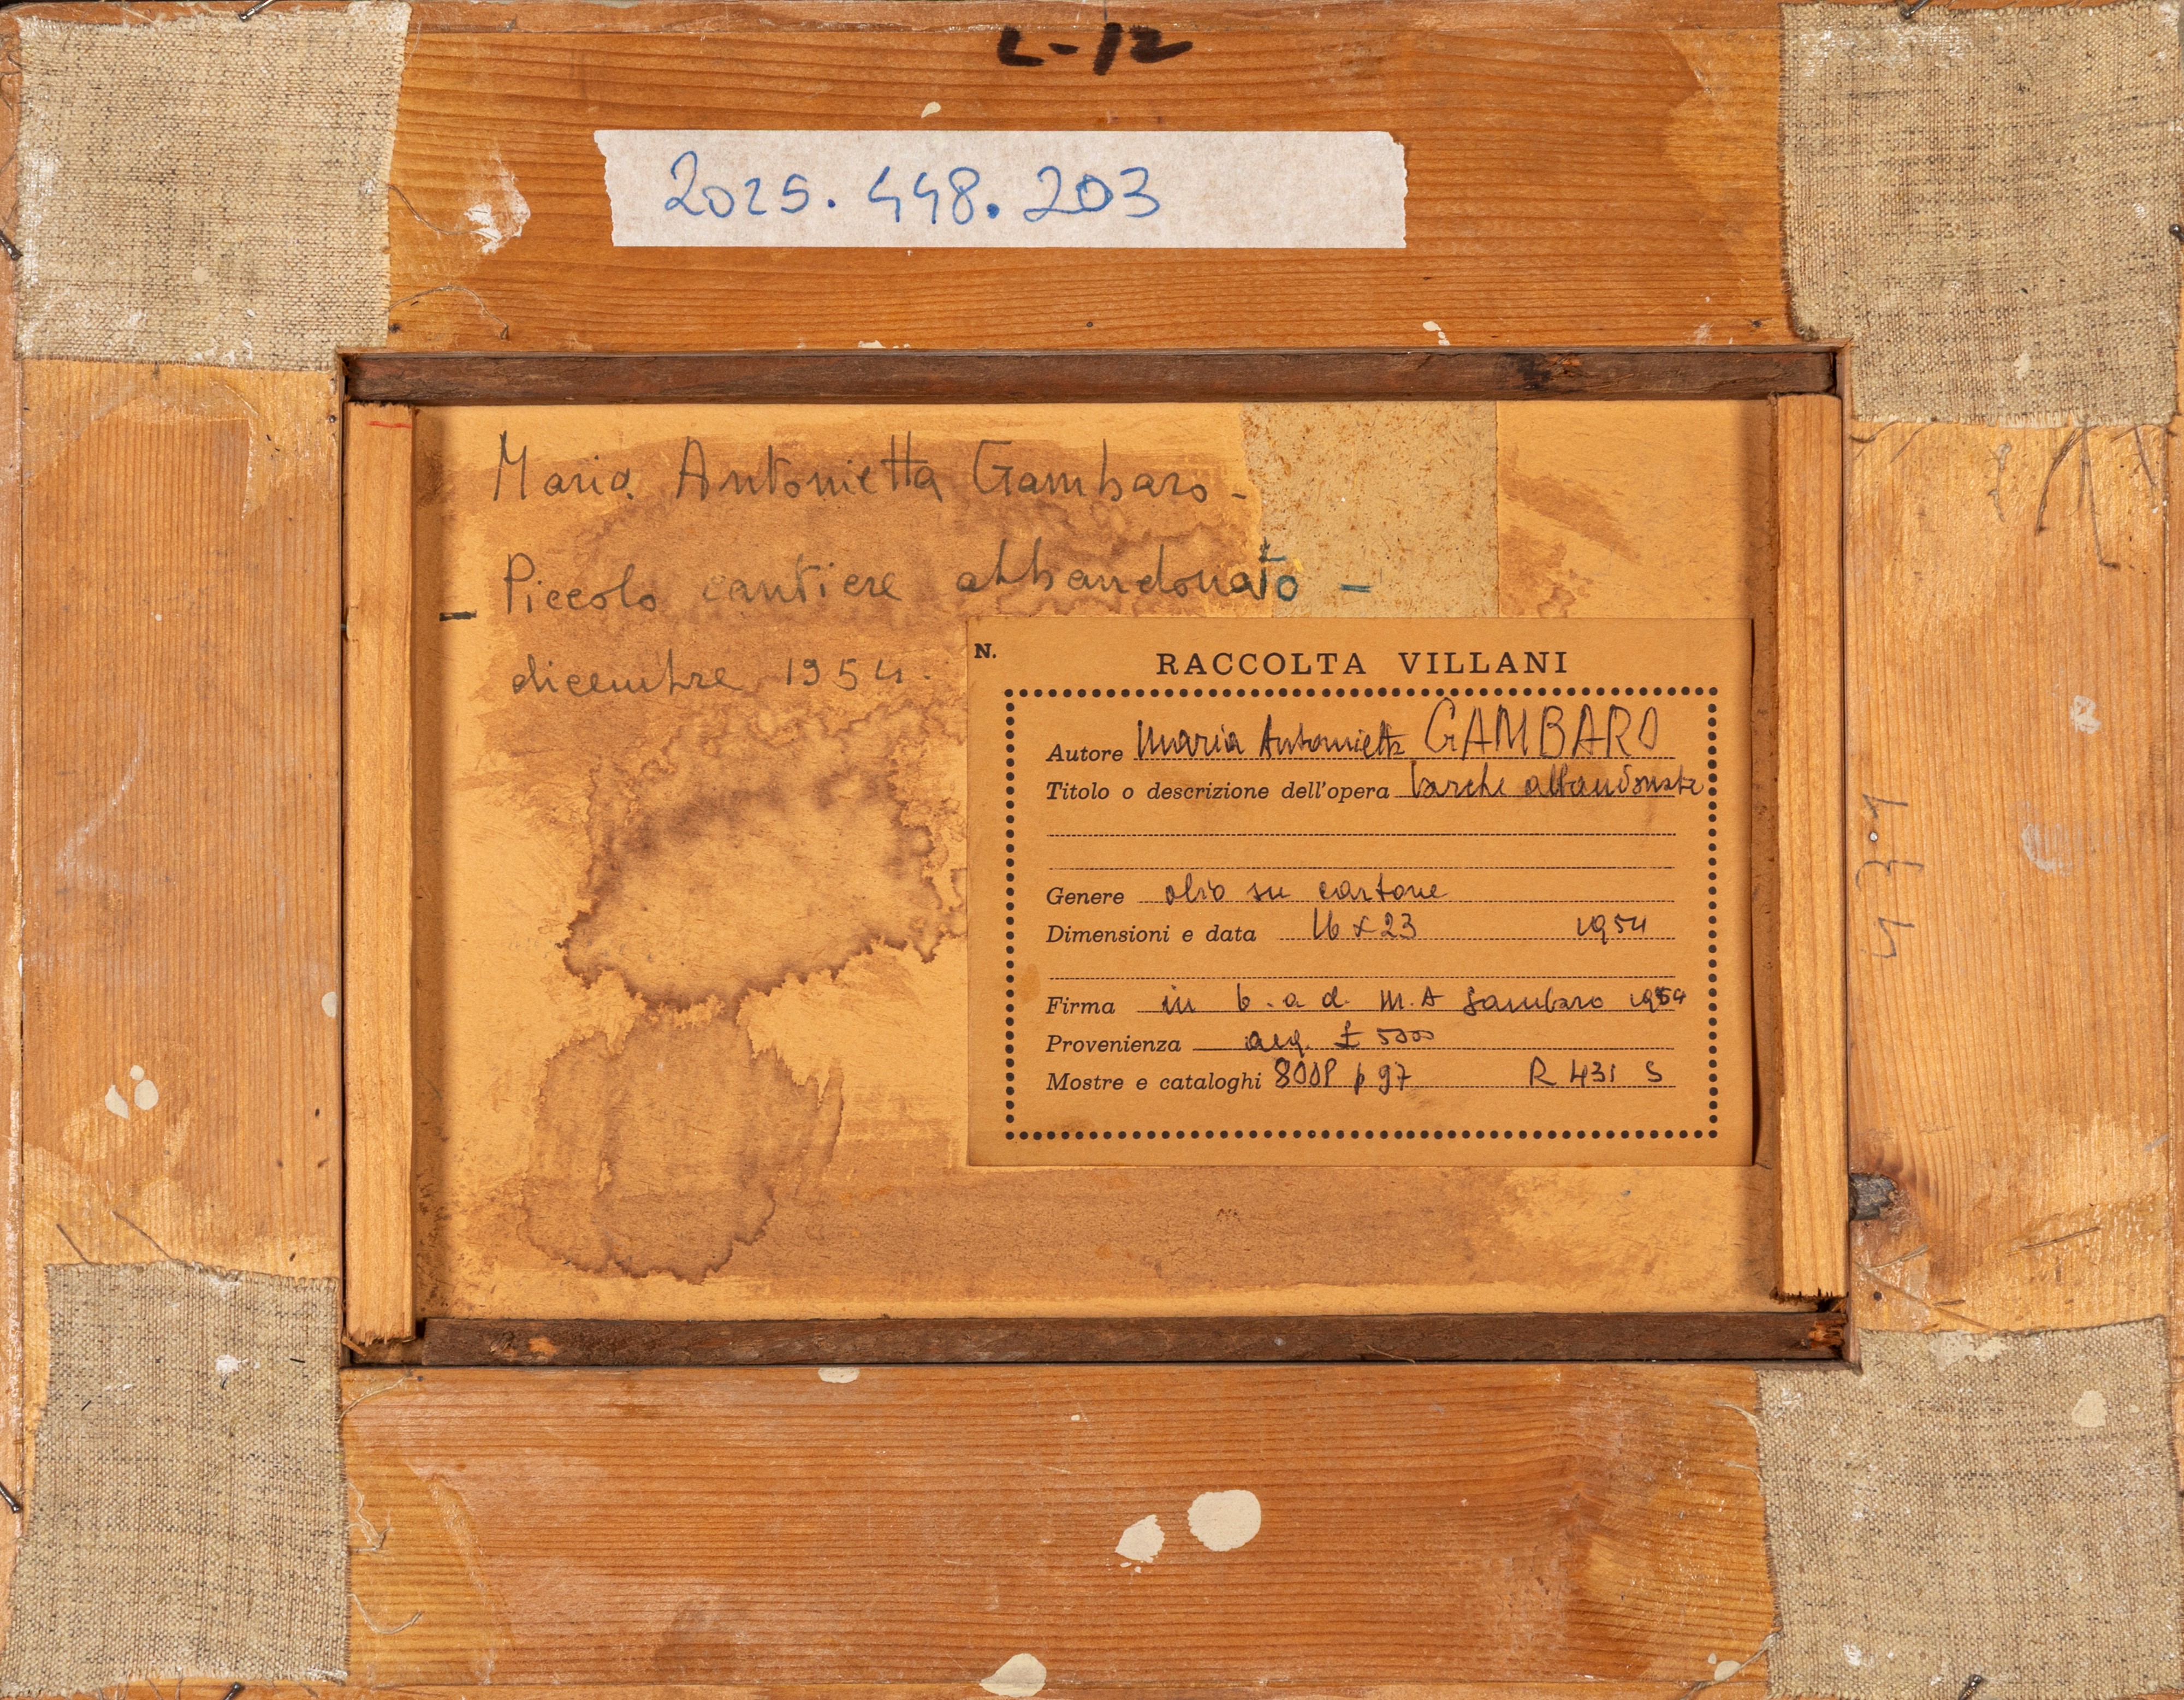 L-12
2025.448.203
Maria Antonietta Gambaro -
- Piccolo cantiere abbandonato -
dicembre 1954.
N.
RACCOLTA VILLANI
Autore Maria Antonietta GAMBARO
Titolo o descrizione dell'opera barche abbandonate
Genere olio su cartone
Dimensioni e data 16 x 23 1954
Firma in b. a d. M. A Gambaro 1954
Provenienza acq. £ 5000
Mostre e cataloghi p 97 R 431 S